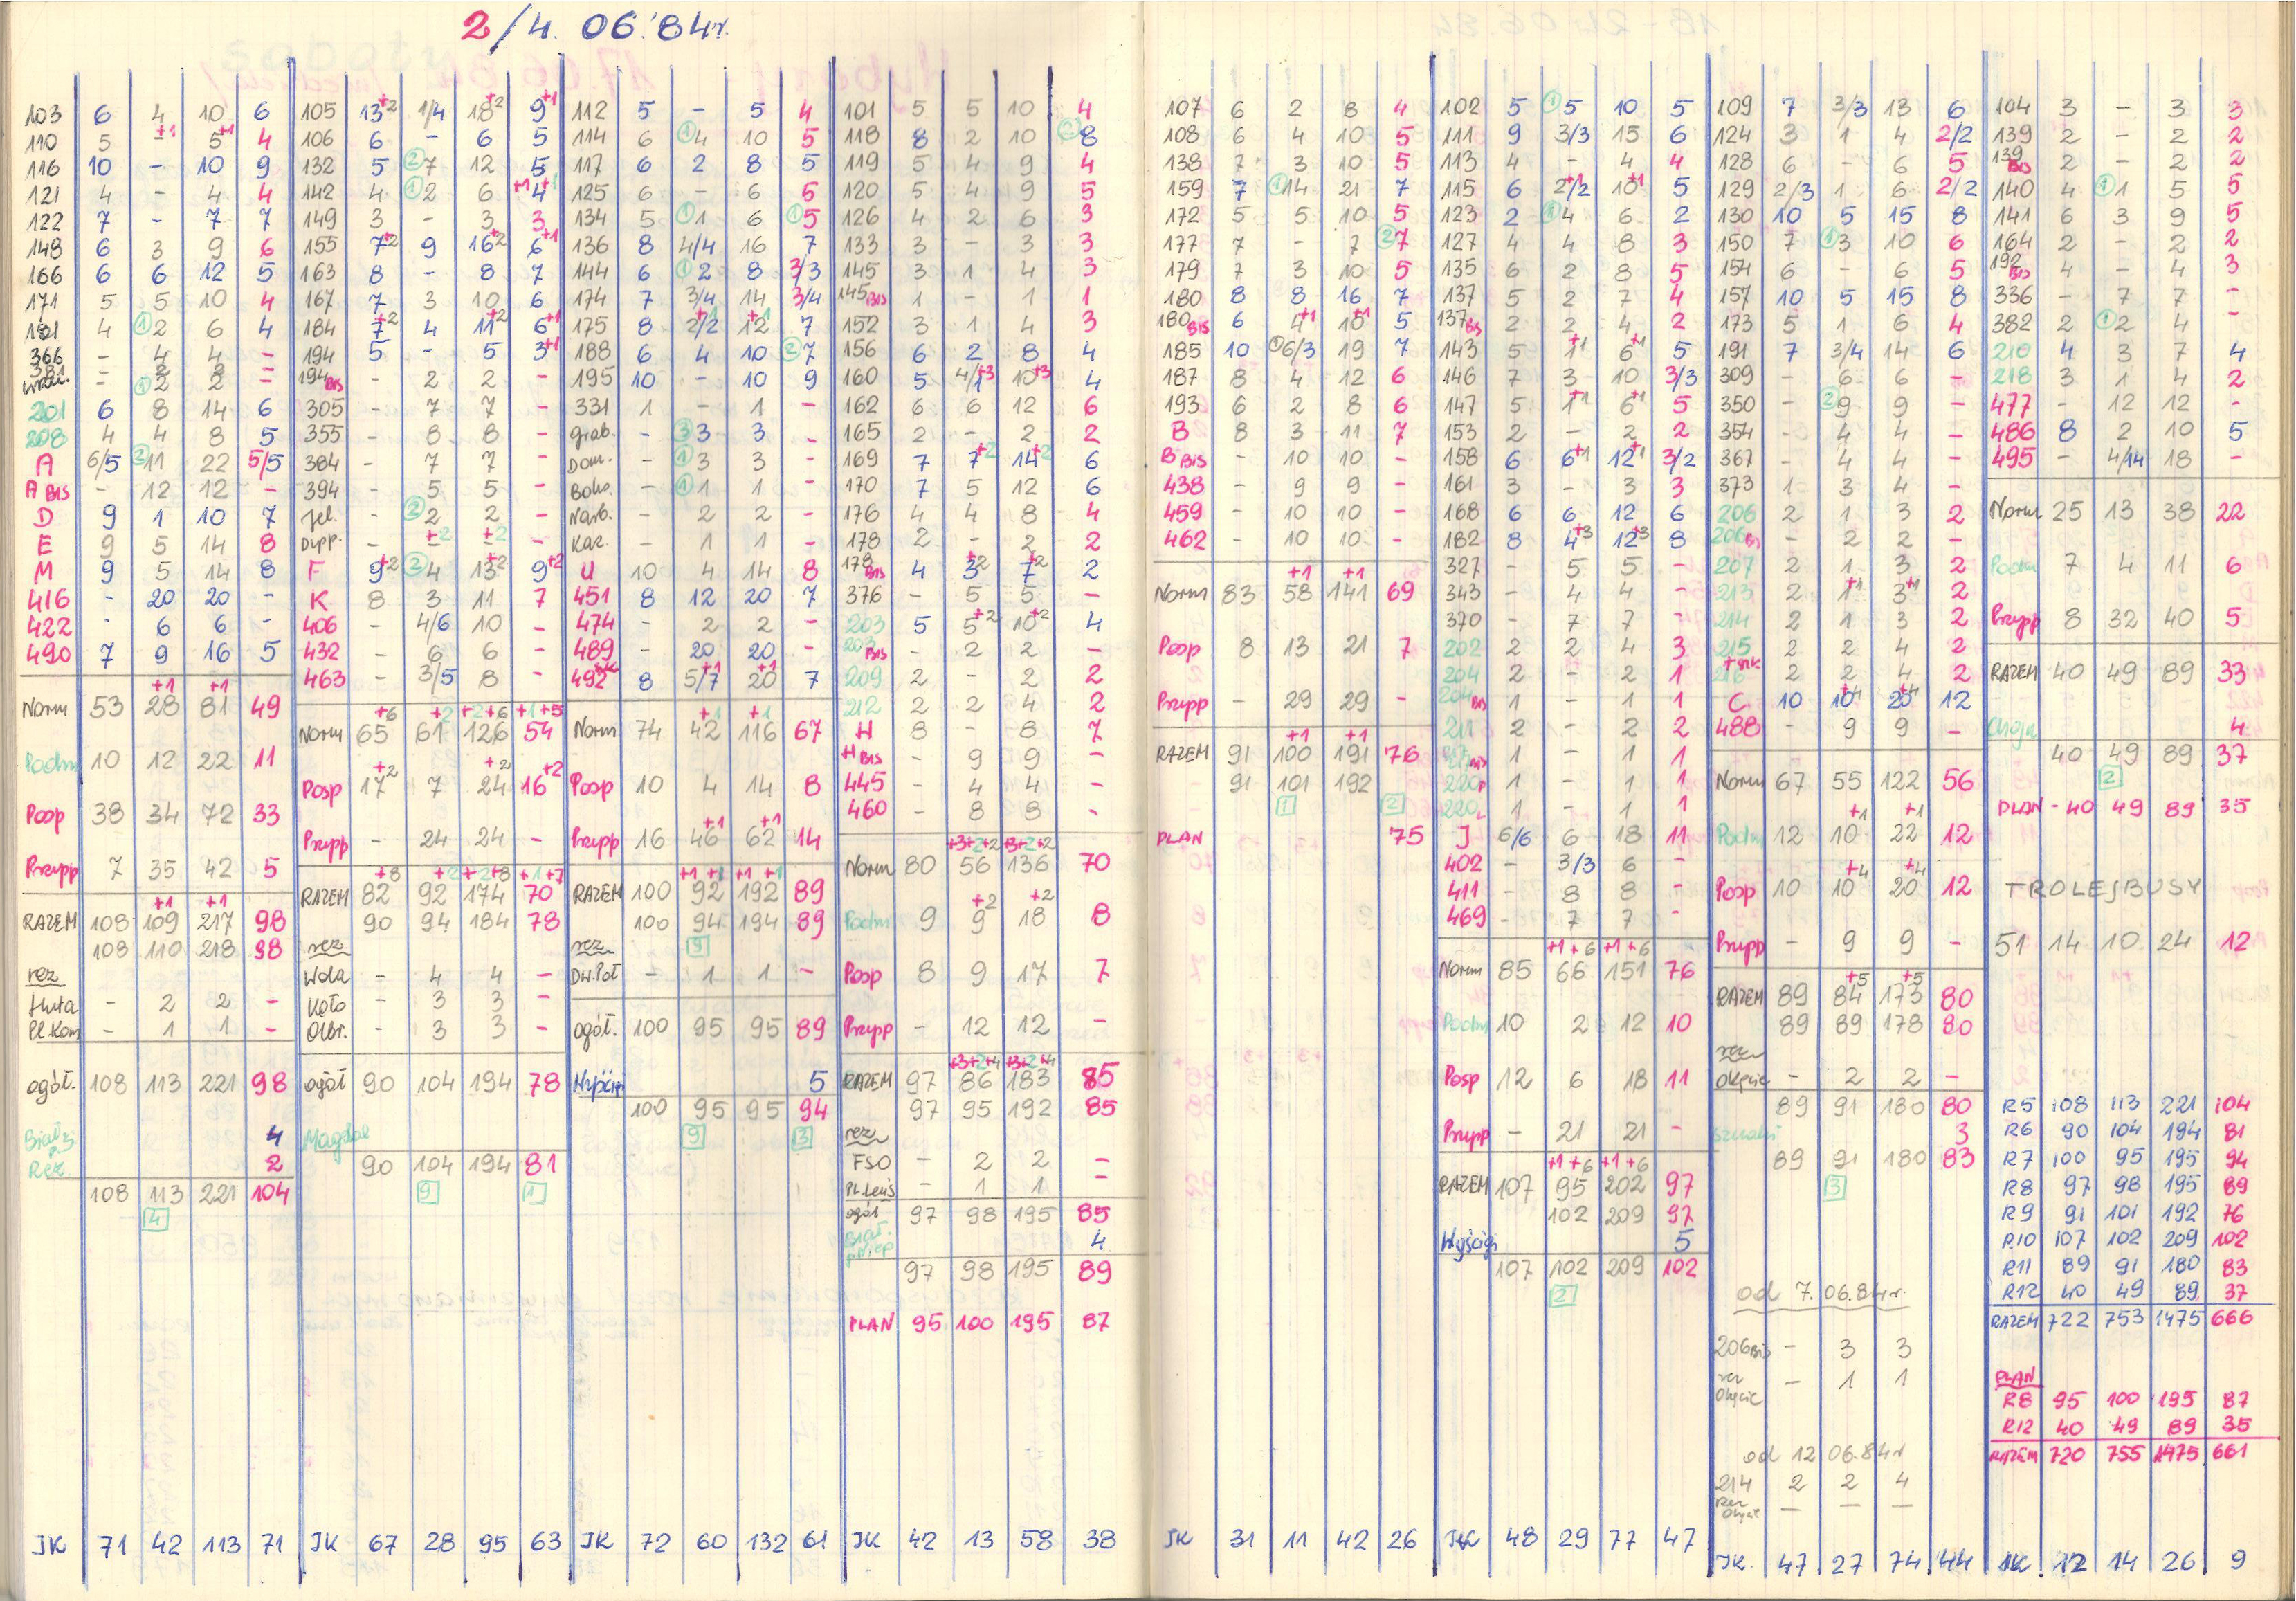 2/4. 06.'84r.
103 6 4 10 6
110 5 -+1 5+1 4
116 10 - 10 9
121 4 - 4 4
122 7 - 7 7
148 6 3 9 6
166 6 6 12 5
171 5 5 10 4
181 4 ①2 6 4
366 - 4 4 -
381 - 2 2 -
- ①2 2 -
201 6 8 14 6
208 4 4 8 5
A 6/5 ②11 22 5/5
A BIS - 12 12 -
D 9 1 10 7
E 9 5 14 8
M 9 5 14 8
416 - 20 20 -
422 - 6 6 -
490 7 9 16 5
+1 +1
Norm 53 28 81 49
Podm 10 12 22 11
Posp 38 34 72 33
Przysp 7 35 42 5
+1 +1
RAZEM 108 109 217 98
108 110 218 98
rez
Huta - 2 2 -
Pl.Kom - 1 1 -
ogół. 108 113 221 98
4
Rez. 2
108 113 221 104
4
JK 71 42 113 71
105 13+2 1/4 18+2 9+1
106 6 - 6 5
132 5 ②7 12 5
142 4 ①2 6 4+1+1
149 3 - 3 3
155 7+2 9 16+2 6+1
163 8 - 8 7
167 7 3 10 6
184 7+2 4 11+2 6+1
194 5 - 5 3+1
194 BIS - 2 2 -
305 - 7 7 -
355 - 8 8 -
384 - 7 7 -
394 - 5 5 -
Jel. - ②2 2 -
Dępp. - -+2 -+2 -
F 9+2 ②4 13+2 9+2
K 8 3 11 7
406 - 4/6 10 -
432 - 6 6 -
463 - 3/5 8 -
+6 +2 +2+6 +1+5
Norm 65 61 126 54
+2 +2 +2
Posp 17 7 24 16
Przysp - 24 24 -
+8 +2 +2+8 +1+7
RAZEM 82 92 174 70
90 94 184 78
rez
Wola - 4 4 -
Koło - 3 3 -
Olbr. - 3 3 -
ogół 90 104 194 78
Magdal
90 104 194 81
9 1
JK 67 28 95 63
112 5 - 5 4
114 6 ①4 10 5
117 6 2 8 5
125 6 - 6 6
134 5 ①1 6 ①5
136 8 4/4 16 7
144 6 ①2 8 3/3
174 7 3/4 14 3/4
175 8 2/2+1 12+1 7
188 6 4 10 ②7
195 10 - 10 9
331 1 - 1 -
Grab. - ③3 3 -
Dom. - ①3 3 -
Boho. - ①1 1 -
Narb. - 2 2 -
Kac. - 1 1 -
U 10 4 14 8
451 8 12 20 7
474 - 2 2 -
489 - 20 20 -
492 8 5/7+1 20+1 7
+1 +1
Norm 74 42 116 67
Posp 10 4 14 8
+1 +1
Przysp 16 46 62 14
+1+1 +1+1
RAZEM 100 92 192 89
100 94 194 89
rez 9
Dw.Poł - 1 1 -
ogół. 100 95 95 89
Wyścigi 5
100 95 95 94
9 3
JK 72 60 132 61
101 5 5 10 4
118 8 2 10 ②8
119 5 4 9 4
120 5 4 9 5
126 4 2 6 3
133 3 - 3 3
145 3 1 4 3
145 BIS 1 - 1 1
152 3 1 4 3
156 6 2 8 4
160 5 4/1+3 10+3 4
162 6 6 12 6
165 2 - 2 2
169 7 7+2 14+2 6
170 7 5 12 6
176 4 4 8 4
178 2 - 2 2
178 BIS 4 3+2 7+2 2
376 - 5 5 -
203 5 5+2 10+2 4
203 BIS - 2 2 -
209 2 - 2 2
212 2 2 4 2
H 8 - 8 7
H BIS - 9 9 -
445 - 4 4 -
460 - 8 8 -
+3+2+2 +3+2+2
Norm 80 56 136 70
+2 +2
Podm 9 9 18 8
Posp 8 9 17 7
Przysp - 12 12 -
+3+2+4 +3+2+4
RAZEM 97 86 183 85
97 95 192 85
rez
FSO - 2 2 -
Pl.Leńs - 1 1 -
ogół 97 98 195 85
4
97 98 195 89
PLAN 95 100 195 87
JK 42 13 58 38
107 6 2 8 4
108 6 4 10 5
138 7 3 10 5
159 7 ①14 21 7
172 5 5 10 5
177 7 - 7 ②7
179 7 3 10 5
180 8 8 16 7
180 BIS 6 4+1 10+1 5
185 10 ①6/3 19 7
187 8 4 12 6
193 6 2 8 6
B 8 3 11 7
B BIS - 10 10 -
438 - 9 9 -
459 - 10 10 -
462 - 10 10 -
+1 +1
Norm 83 58 141 69
Posp 8 13 21 7
Przysp - 29 29 -
+1 +1
RAZEM 91 100 191 76
91 101 192
1 2
PLAN 75
JK 31 11 42 26
102 5 ①5 10 5
111 9 3/3 15 6
113 4 - 4 4
115 6 2/2+1 10+1 5
123 2 ①4 6 2
127 4 4 8 3
135 6 2 8 5
137 5 2 7 4
137 BIS 2 2 4 2
143 5 1+1 6+1 5
146 7 3 10 3/3
147 5 1+1 6+1 5
153 2 - 2 2
158 6 6+1 12+1 3/2
161 3 - 3 3
168 6 6 12 6
182 8 4+3 12+3 8
327 - 5 5 -
343 - 4 4 -
370 - 7 7 -
202 2 2 4 3
204 2 - 2 1
204 BIS 1 - 1 1
211 2 - 2 2
217 BIS 1 - 1 1
220P 1 - 1 1
220L 1 - 1 1
J 6/6 6 18 11
402 - 3/3 6 -
411 - 8 8 -
469 - 7 7 -
+1+6 +1+6
Norm 85 66 151 76
Podm 10 2 12 10
Posp 12 6 18 11
Przysp - 21 21 -
+1+6 +1+6
RAZEM 107 95 202 97
102 209 97
Wyścigi 5
107 102 209 102
2
JK 48 29 77 47
109 7 3/3 13 6
124 3 1 4 2/2
128 6 - 6 5
129 2/3 1 6 2/2
130 10 5 15 8
150 7 ①3 10 6
154 6 - 6 5
157 10 5 15 8
173 5 1 6 4
191 7 3/4 14 6
309 - 6 6 -
350 - ②9 9 -
354 - 4 4 -
367 - 4 4 -
373 1 3 4 -
206 2 1 3 2
206 BIS - 2 2 -
207 2 1 3 2
213 2 1+1 3+1 2
214 2 1 3 2
215 2 2 4 2
216 2 2 4 2
C 10 10+4 20+4 12
488 - 9 9 -
Norm 67 55 122 56
+1 +1
Podm 12 10 22 12
+4 +4
Posp 10 10 20 12
Przysp - 9 9 -
+5 +5
RAZEM 89 84 173 80
89 89 178 80
rez
Okęcie - 2 2 -
89 91 180 80
3
89 91 180 83
3
od 7.06.84r.
206 BIS - 3 3
rez Okęcie - 1 1
od 12 06.84r
214 2 2 4
Rez Okęcie - - -
JK. 47 27 74 44
104 3 - 3 3
139 2 - 2 2
139 BIS 2 - 2 2
140 4 ①1 5 5
141 6 3 9 5
164 2 - 2 2
192 BIS 4 - 4 3
336 - 7 7 -
382 2 ①2 4 -
210 4 3 7 4
218 3 1 4 2
477 - 12 12 -
486 8 2 10 5
495 - 4/14 18 -
Norm 25 13 38 22
Podm 7 4 11 6
Przysp 8 32 40 5
RAZEM 40 49 89 33
Chojn 4
40 49 89 37
2
PLAN - 40 49 89 35
TROLEJBUSY
51 14 10 24 12
R5 108 113 221 104
R6 90 104 194 81
R7 100 95 195 94
R8 97 98 195 89
R9 91 101 192 76
R10 107 102 209 102
R11 89 91 180 83
R12 40 49 89 37
RAZEM 722 753 1475 666
PLAN
R8 95 100 195 87
R12 40 49 89 35
RAZEM 720 755 1475 661
JK 12 14 26 9